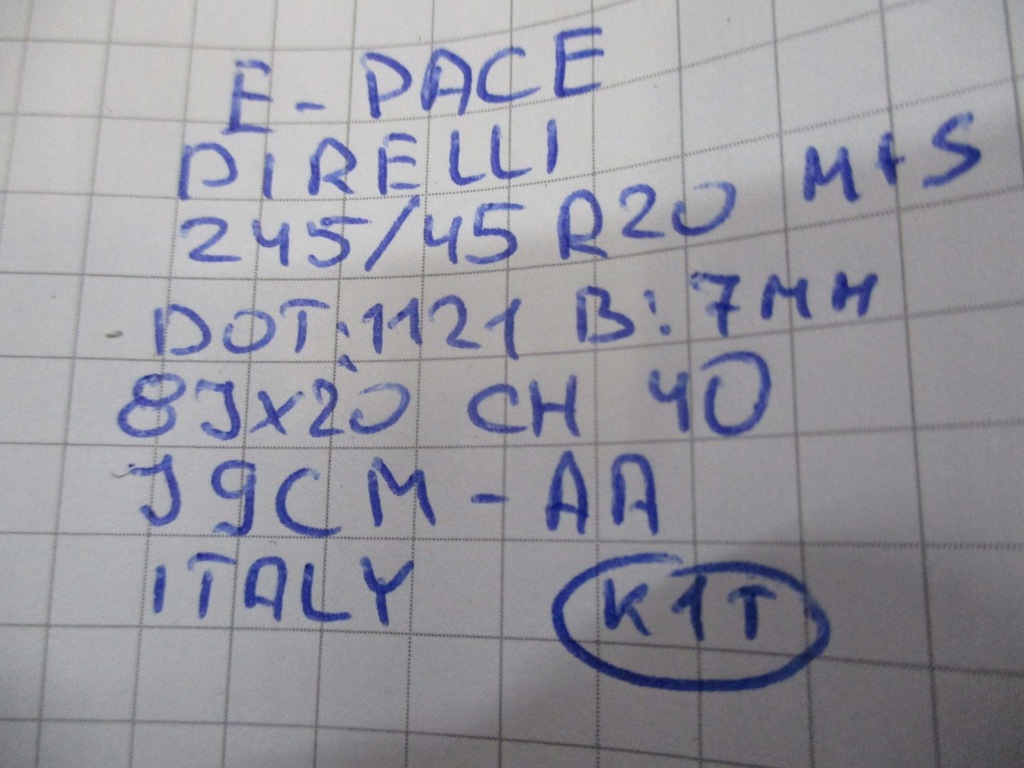 E-PACE
PIRELLI
245/45 R20 M+S
DOT:1121 B:7MM
8Jx20 CH 40
J9CM-AA
ITALY K1T